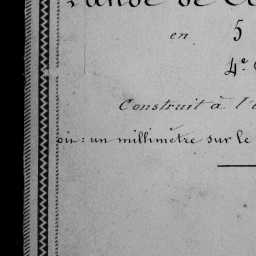 en 5
4e
Construit à l'
oir : un millimètre sur le